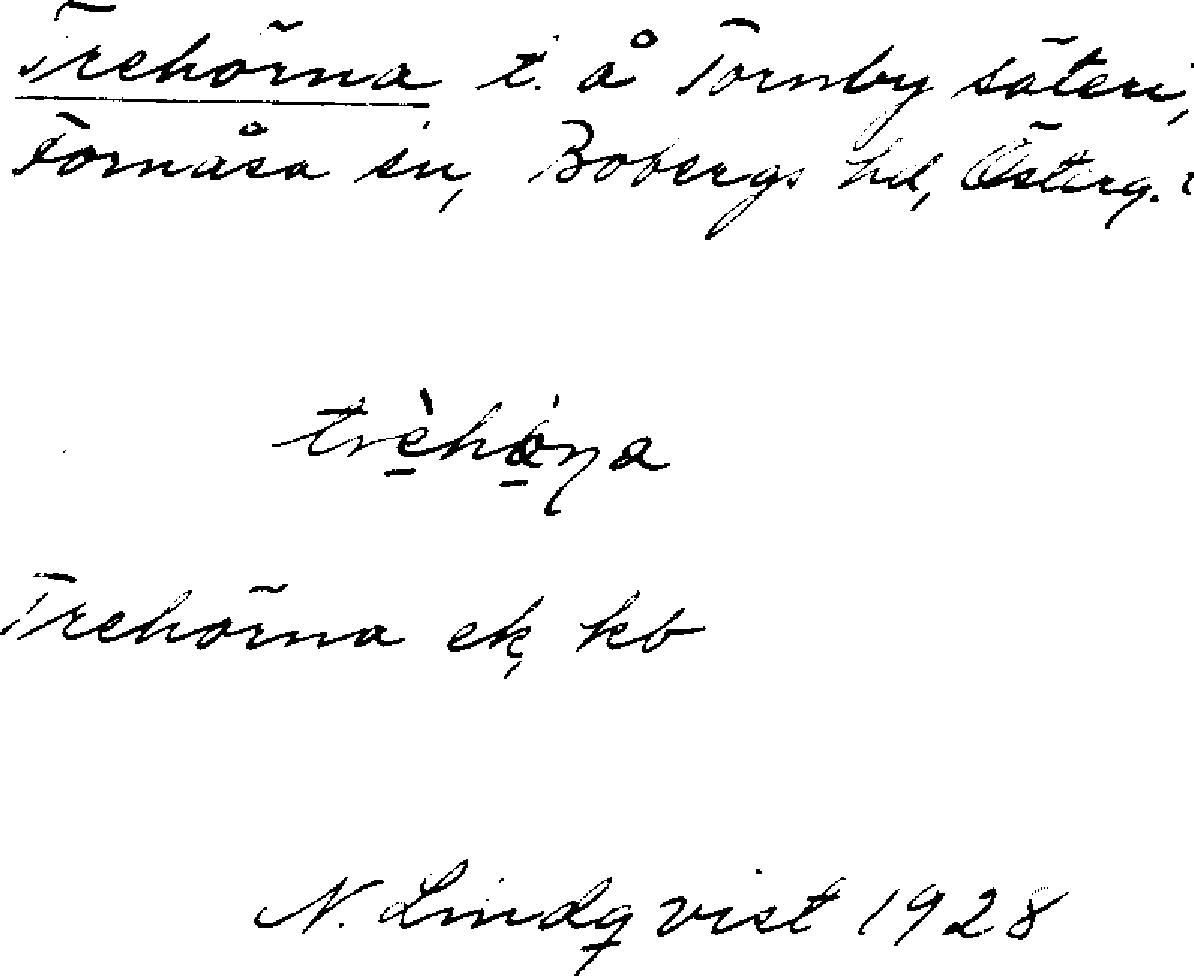 Trehörna t. å Tornby säteri,
Fornåsa sn, Bobergs hd, Österg.
trèhö́ɳa
Trehörna ek, kb
N. Lindqvist 1928